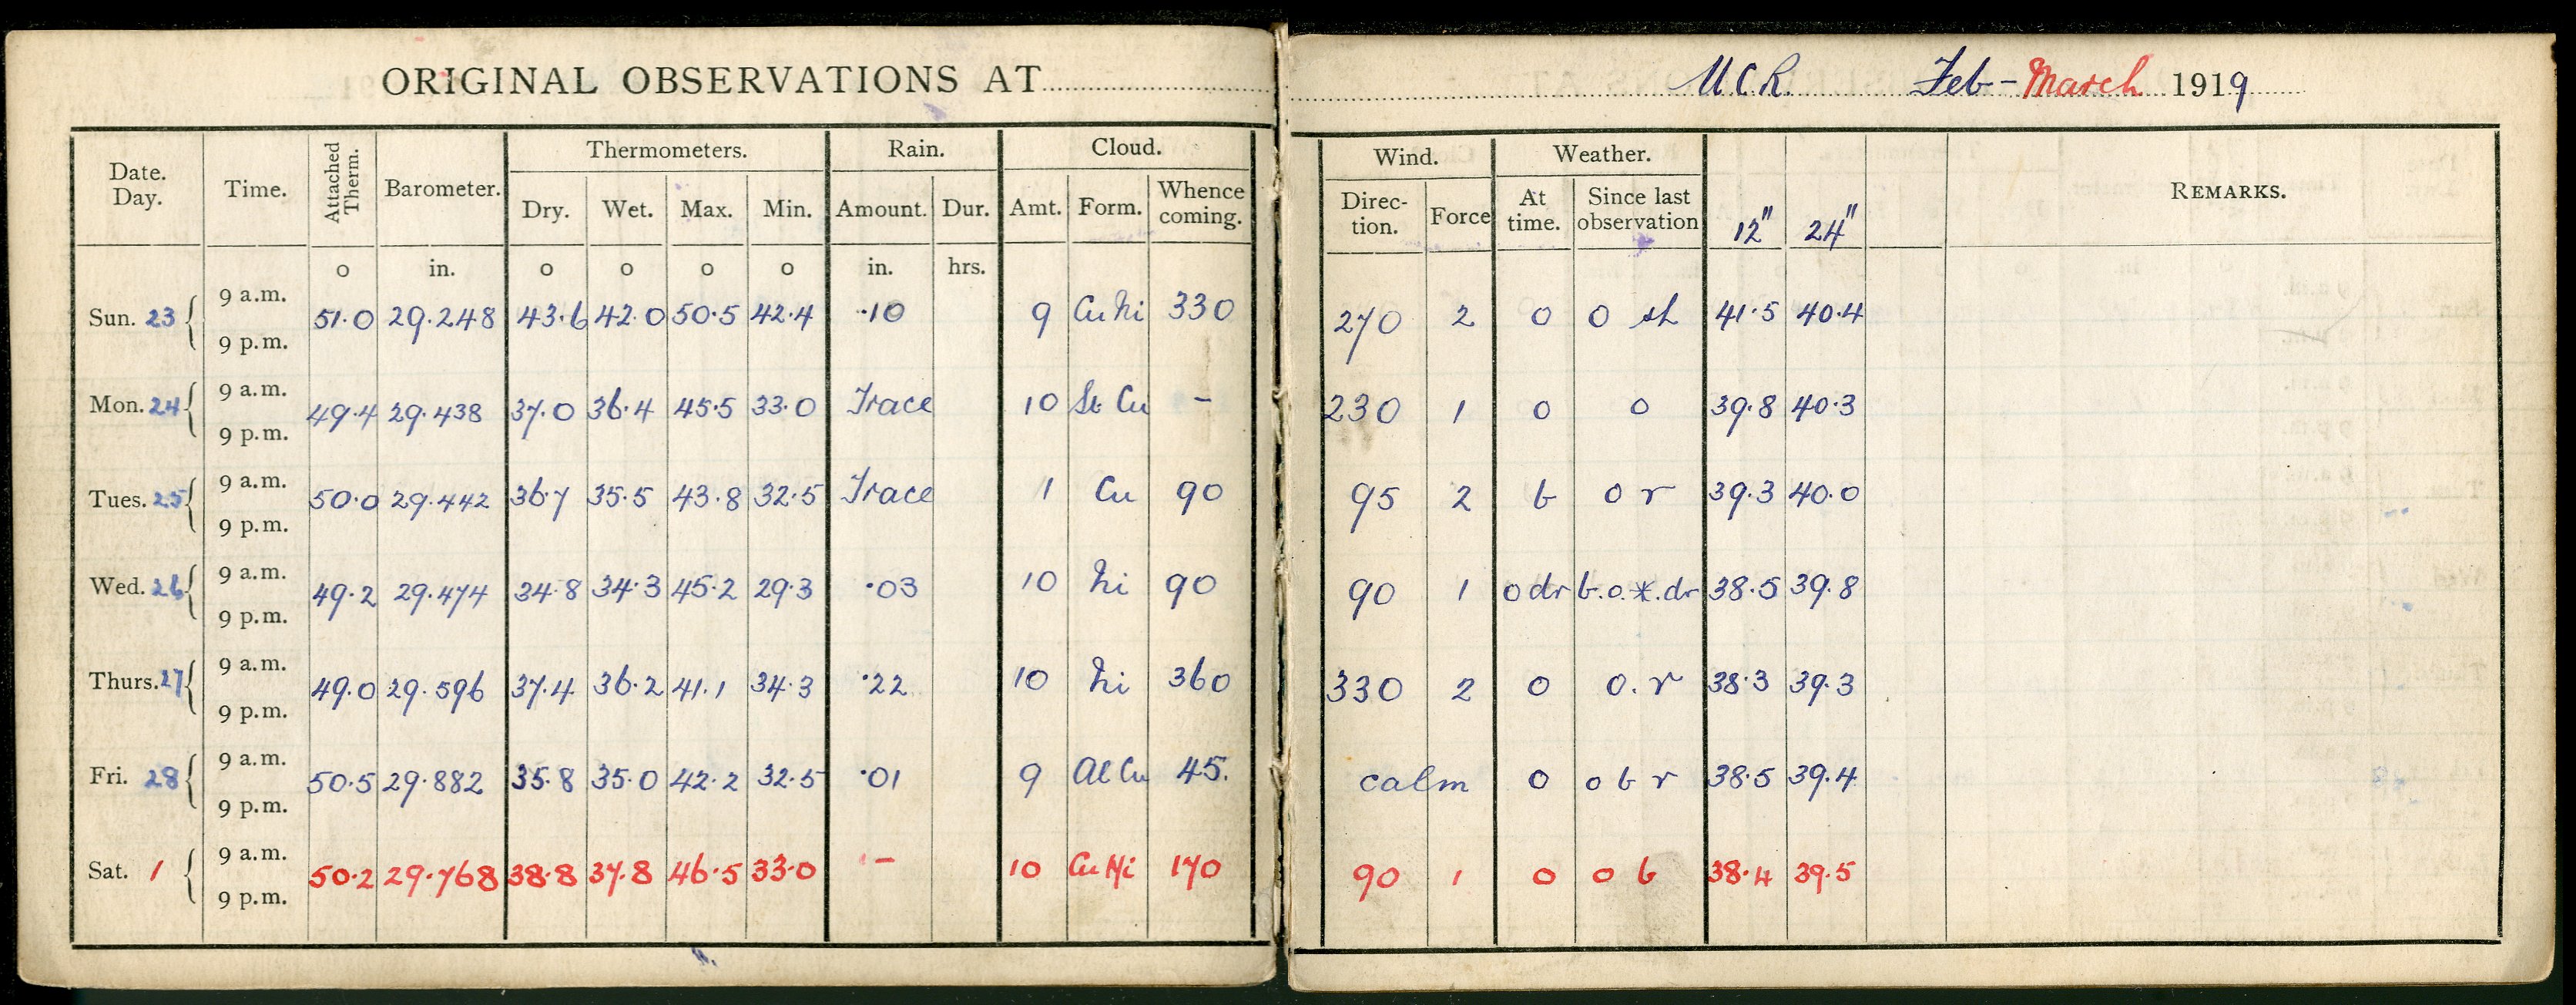 ORIGINAL OBSERVATIONS AT U C R. Feb - March 1919
Date. Day. Time. Attached Therm. Barometer. Thermometers. Rain. Cloud. Wind. Weather. REMARKS.
Dry. Wet. Max. Min. Amount. Dur. Amt. Form. Whence coming. Direction. Force At time. Since last observation 12" 24"
o in. o o o o in. hrs.
Sun. 23 { 9 a.m. 51.0 29.248 43.6 42.0 50.5 42.4 .10 9 Cu Ni 330 270 2 o o sh 41.5 40.4
9 p.m.
Mon. 24 { 9 a.m. 49.4 29.438 37.0 36.4 45.5 33.0 Trace 10 St Cu - 230 1 o o 39.8 40.3
9 p.m.
Tues. 25 { 9 a.m. 50.0 29.442 36.7 35.5 43.8 32.5 Trace 1 Cu 90 95 2 b o r 39.3 40.0
9 p.m.
Wed. 26 { 9 a.m. 49.2 29.474 34.8 34.3 45.2 29.3 .03 10 Ni 90 90 1 o dr b.o.*.dr 38.5 39.8
9 p.m.
Thurs. 27 { 9 a.m. 49.0 29.596 37.4 36.2 41.1 34.3 .22 10 Ni 360 330 2 o o. r 38.3 39.3
9 p.m.
Fri. 28 { 9 a.m. 50.5 29.882 35.8 35.0 42.2 32.5 .01 9 Al Cu 45. calm o o b r 38.5 39.4
9 p.m.
Sat. 1 { 9 a.m. 50.2 29.768 38.8 37.8 46.5 33.0 - 10 Cu Ni 170 90 1 o o b 38.4 39.5
9 p.m.